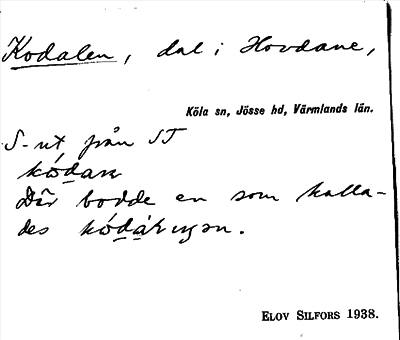 Kodalen, dal i Hovdane,
Köla sn, Jösse hd, Värmlands län.
S-ut från ST
kódan
Där bodde en som kalla-
des
ELOV SILFORS 1938.